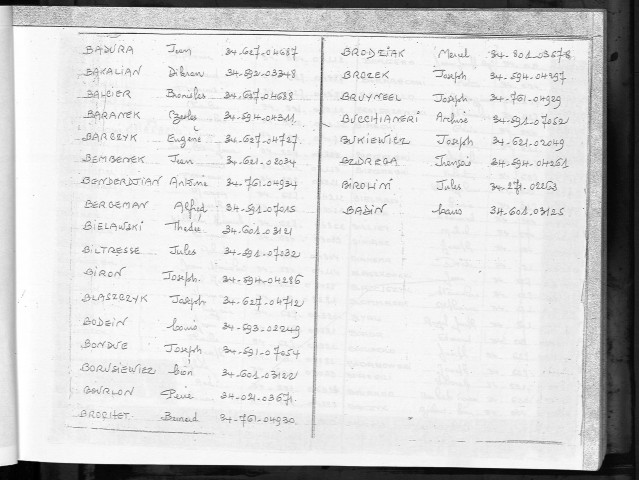 BADURA Jean 34-627-04687
BAKALIAN Dikran 34-592-03348
BALCIER 34-627-04688
BARANEK 34-594-04311
BARCZYK Eugène 34-627-04727
BEMBENEK Jean 34-621-02034
BENDERDJIAN Antoine 34-761-04934
BERGEMAN Alfred 34-591-07015
BIELAWSKI Thadée 34-601-03121
BILTRESSE Jules 34-591-07032
BIRON Joseph 34-594-04286
BLASZCZYK Joseph 34-627-04712
BODEIN Louis 34-593-02249
BONDUE Joseph 34-591-07054
BORUSIEWIEZ Léon 34-601-03122
BOURLON Pierre 34-021-03671
BROCHET Bernard 34-761-04930
BRODZIAK Marcel 34-801-03578
BROZEK Joseph 34-594-04297
BRUYNEEL Joseph 34-761-04929
BUCCHIANERI 34-591-07062
BUKIEWICZ Joseph 34-621-02049
BZDREGA François 34-594-04261
BIROLINI Jules 34-271-02263
BADIN Louis 34-601-03125